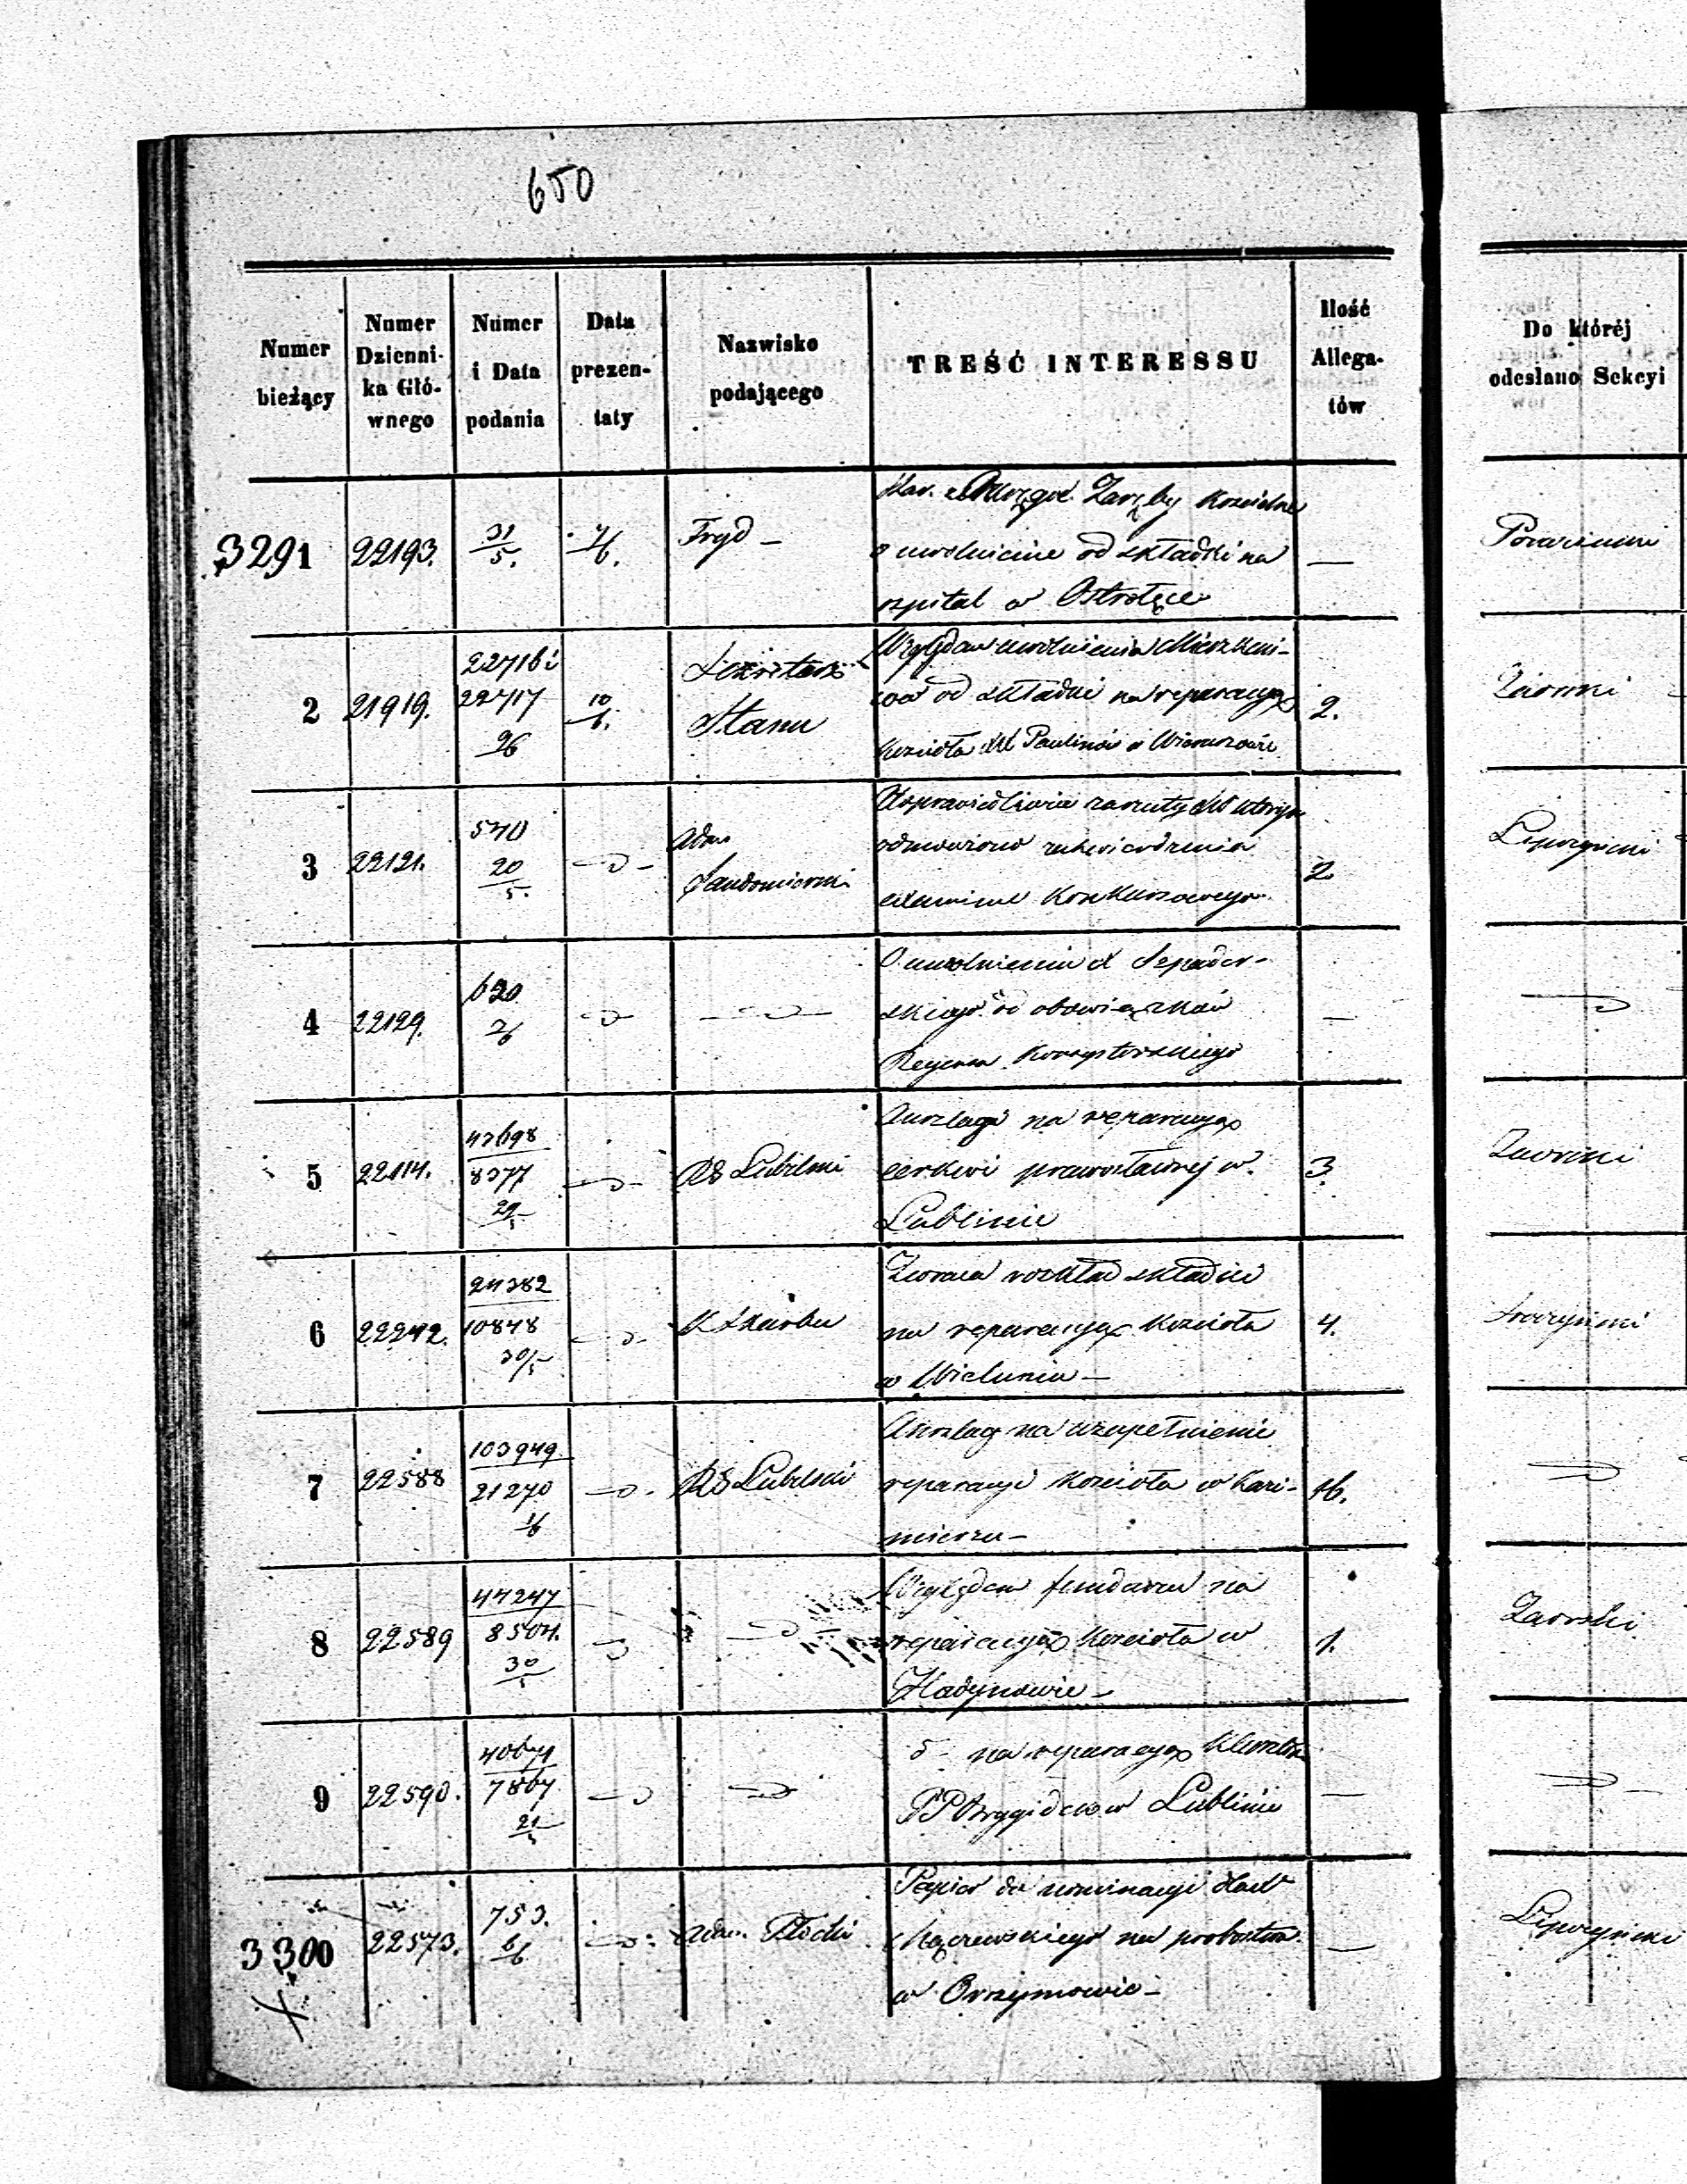 650
Numer bieżący
Numer Dzienni- ka Głó- wnego
Numer i Data podania
Data prezen- taty
Nazwisko podającego
TREŚĆ INTERESSU
Ilość Allega- tów
Do któréj odesłano Sekcyi
3291 22193. 31/5. 7/6. Fryd —
Zaręby Kościelne
o uwolnienie od składki na
szpital w Ostrołęce
—
2 21919. 22716 i 22717 2/6 10/6. Sekretarz Stanu
Względem uwolnienia Mieszkań-
ców od składki na reparacyą
Kościoła XX Paulinów w Wieruszowie
2.
3 22121. 570 20/5. Adm. Sandomierski
Usprawiedliwia zarzuty dla których
odmówiono zatwierdzenia
examinu Konkursowego
2
4 22129. 620 7/6
O uwolnieniu X
skiego od obowiązków
Regensa Konsystorskiego
—
5 22114. 43698 8377 29/5 RG Lubelski
Anszlagi na reparacyą
cerkwi prawosławnej w
Lublinie
3.
Zaorski
6 22242. 24382 10848 30/5 K Skarbu
Zwraca rozkład składki
na reparacyą Kościoła
w Wieluniu —
4.
7 22588 103949 21270 1/6 RG Lubelski
Anszlag na uzupełnienie
reparacyi Kościoła w Kazi-
mierzu —
16.
8 22589 44247 8504. 30/5
Względem funduszu na
reparacyą Kościoła w
Hadynowie —
1.
Zaorski
9 22590. 40671 7867 21/5
na reparacyą Klasztoru
PP Brygidek w Lublinie
—
3300 22573. 753. 6/6 Adm. Płocki
Papier do nominacyi
na probostwo
w Orszymowie —
—